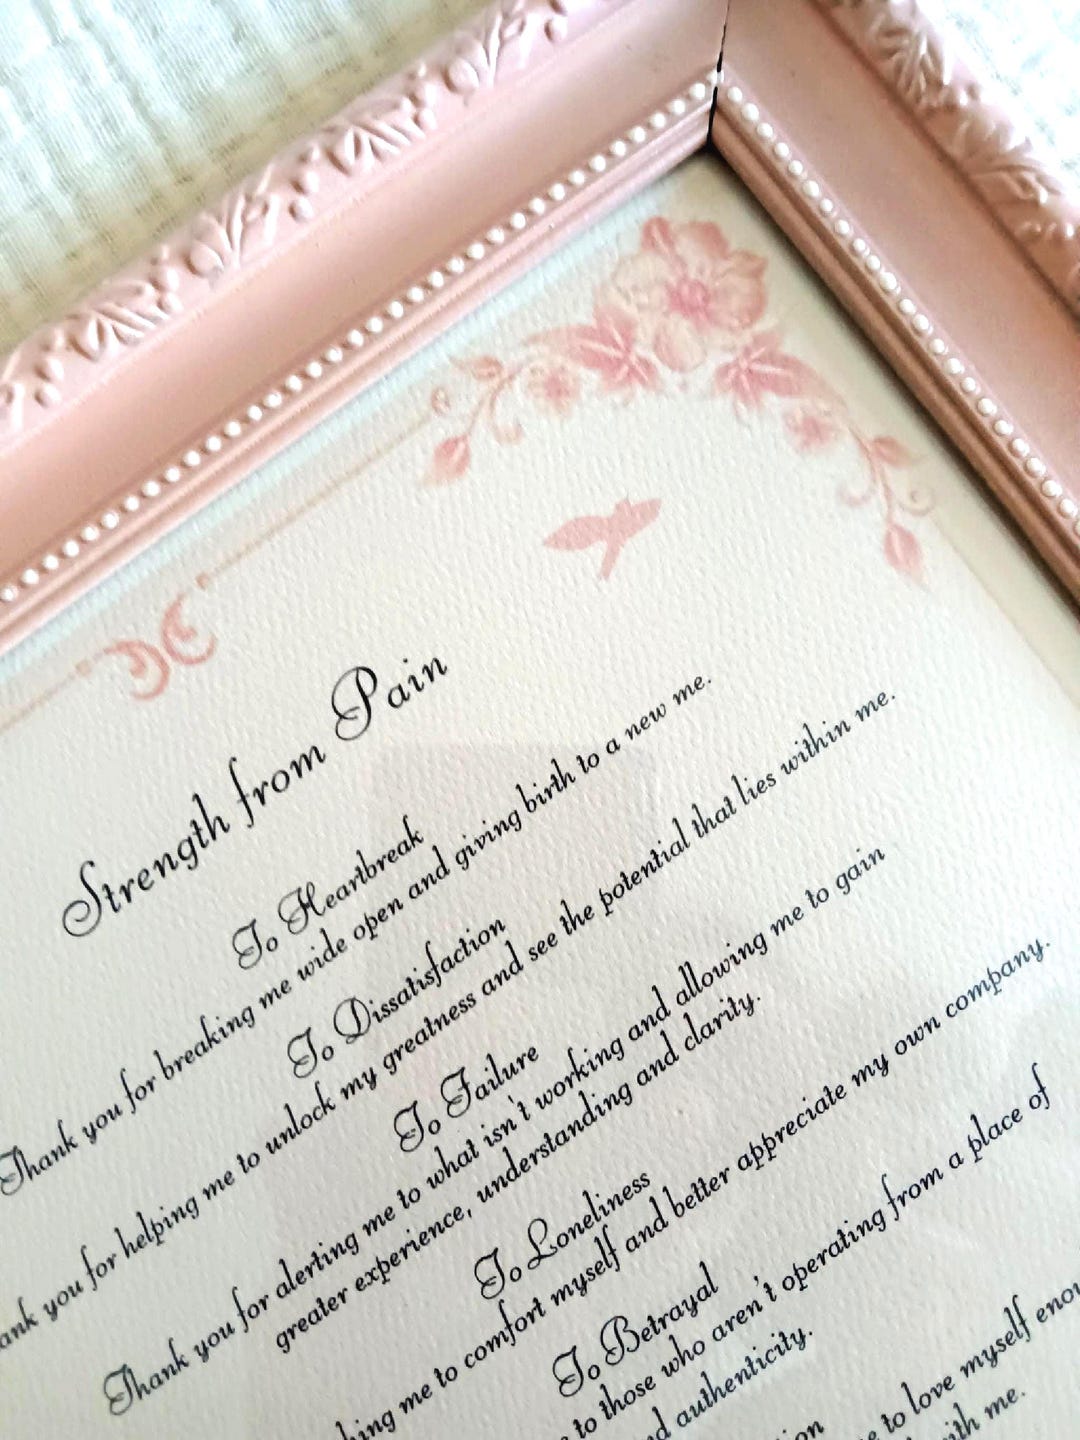 Strength from Pain
To Heartbreak
Thank you for breaking me wide open and giving birth to a new me.
To Dissatisfaction
ank you for helping me to unlock my greatness and see the potential that lies within me.
To Failure
Thank you for alerting me to what isn't working and allowing me to gain
greater experience, understanding and clarity.
To Loneliness
hing me to comfort myself and better appreciate my own company.
To Betrayal
to those who aren't operating from a place of
nd authenticity.
tion
e to love myself enou
with me.